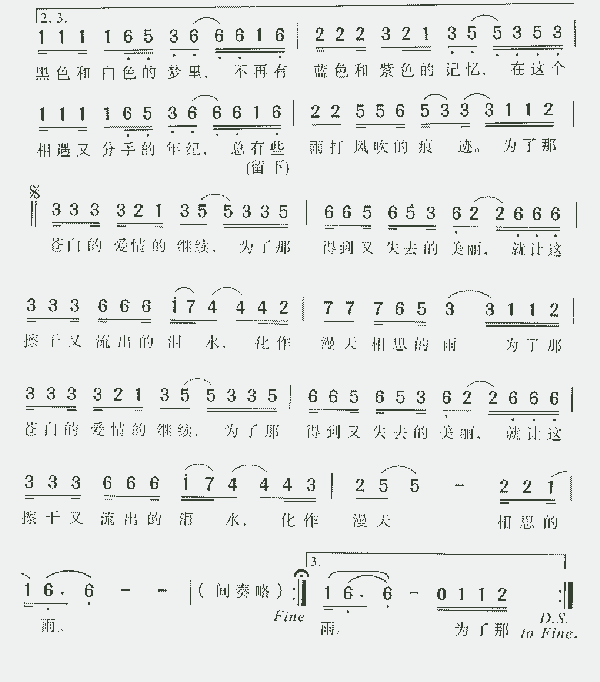 2. 3.
1 1 1 1 6 5 3 6 6 6 1 6 | 2 2 2 3 2 1 3 5 5 3 5 3 |
黑色和 白色的 梦里, 不再有 蓝色和 紫色的 记忆, 在这个
1 1 1 1 6 5 3 6 6 6 1 6 | 2 2 5 5 6 5 3 3 3 1 1 2 |
相遇又 分手的 年纪, 总有些 雨打 风吹的 痕 迹。 为了那
(留下)
3 3 3 3 2 1 3 5 5 3 3 5 | 6 6 5 6 5 3 6 2 2 6 6 6 |
苍白的 爱情的 继续, 为了那 得到又 失去的 美丽, 就让这
3 3 3 6 6 6 i 7 4 4 4 2 | 7 7 7 6 5 3 3 1 1 2 |
擦干又 流出的 泪 水, 化作 漫天 相思的 雨 为了那
3 3 3 3 2 1 3 5 5 3 3 5 | 6 6 5 6 5 3 6 2 2 6 6 6 |
苍白的 爱情的 继续, 为了那 得到又 失去的 美丽, 就让这
3 3 3 6 6 6 i 7 4 4 4 3 | 2 5 5 - 2 2 1 |
擦干又 流出的 泪 水, 化作 漫天 相思的
3.
1 6. 6 - - | ( 间奏略 ) :‖ 1 6. 6 - 0 1 1 2 :‖
Fine D.S.
雨。 雨, 为了那 to Fine.